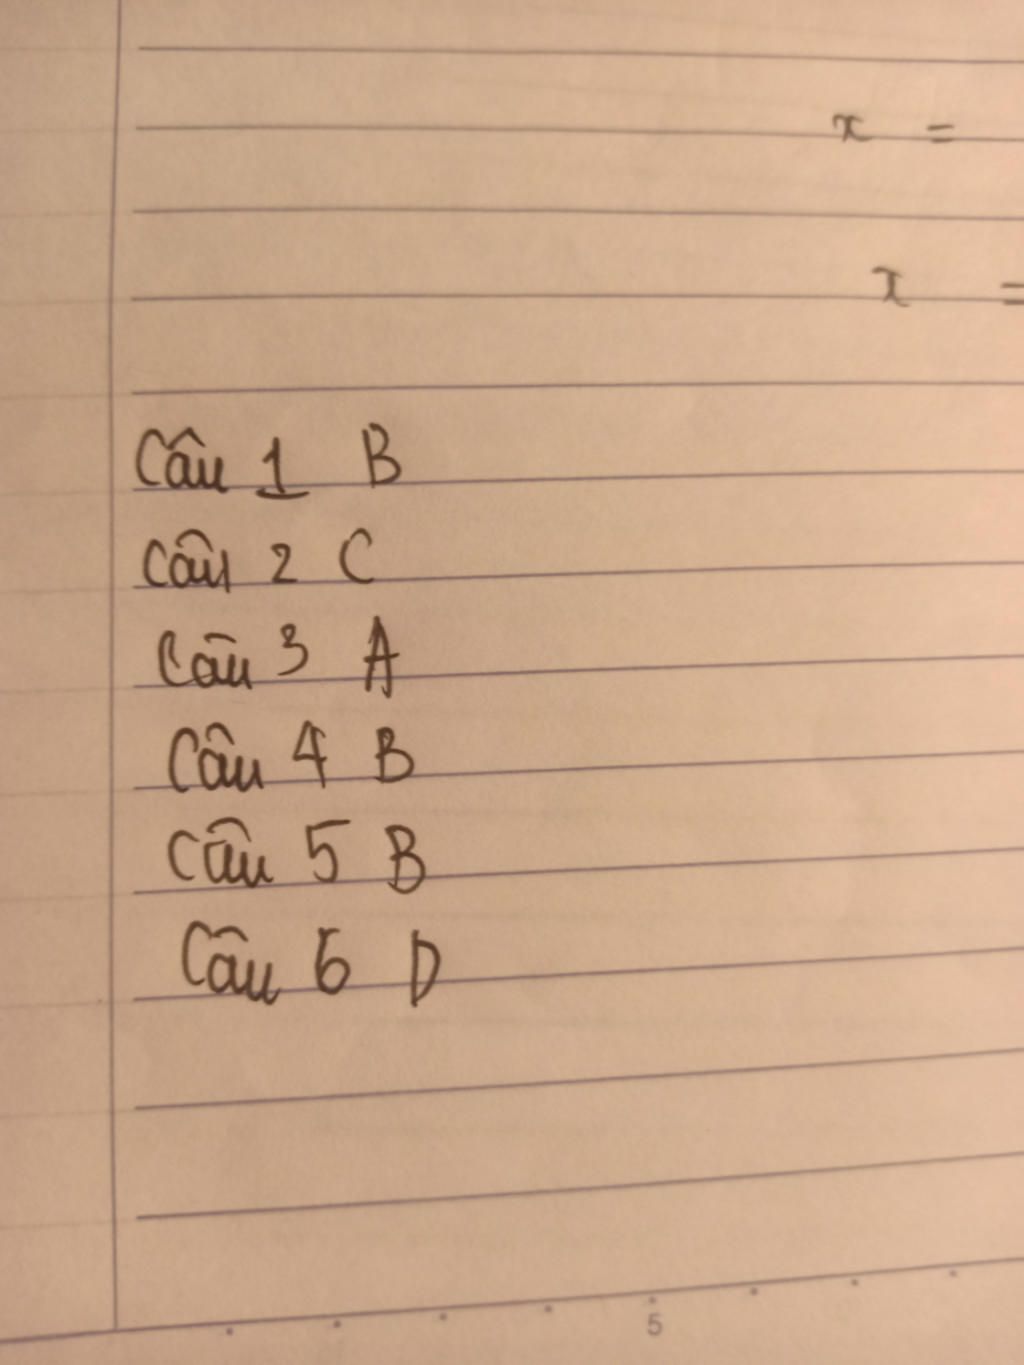 x =
x =
Câu 1 B
Câu 2 C
Câu 3 A
Câu 4 B
Câu 5 B
Câu 6 D
5